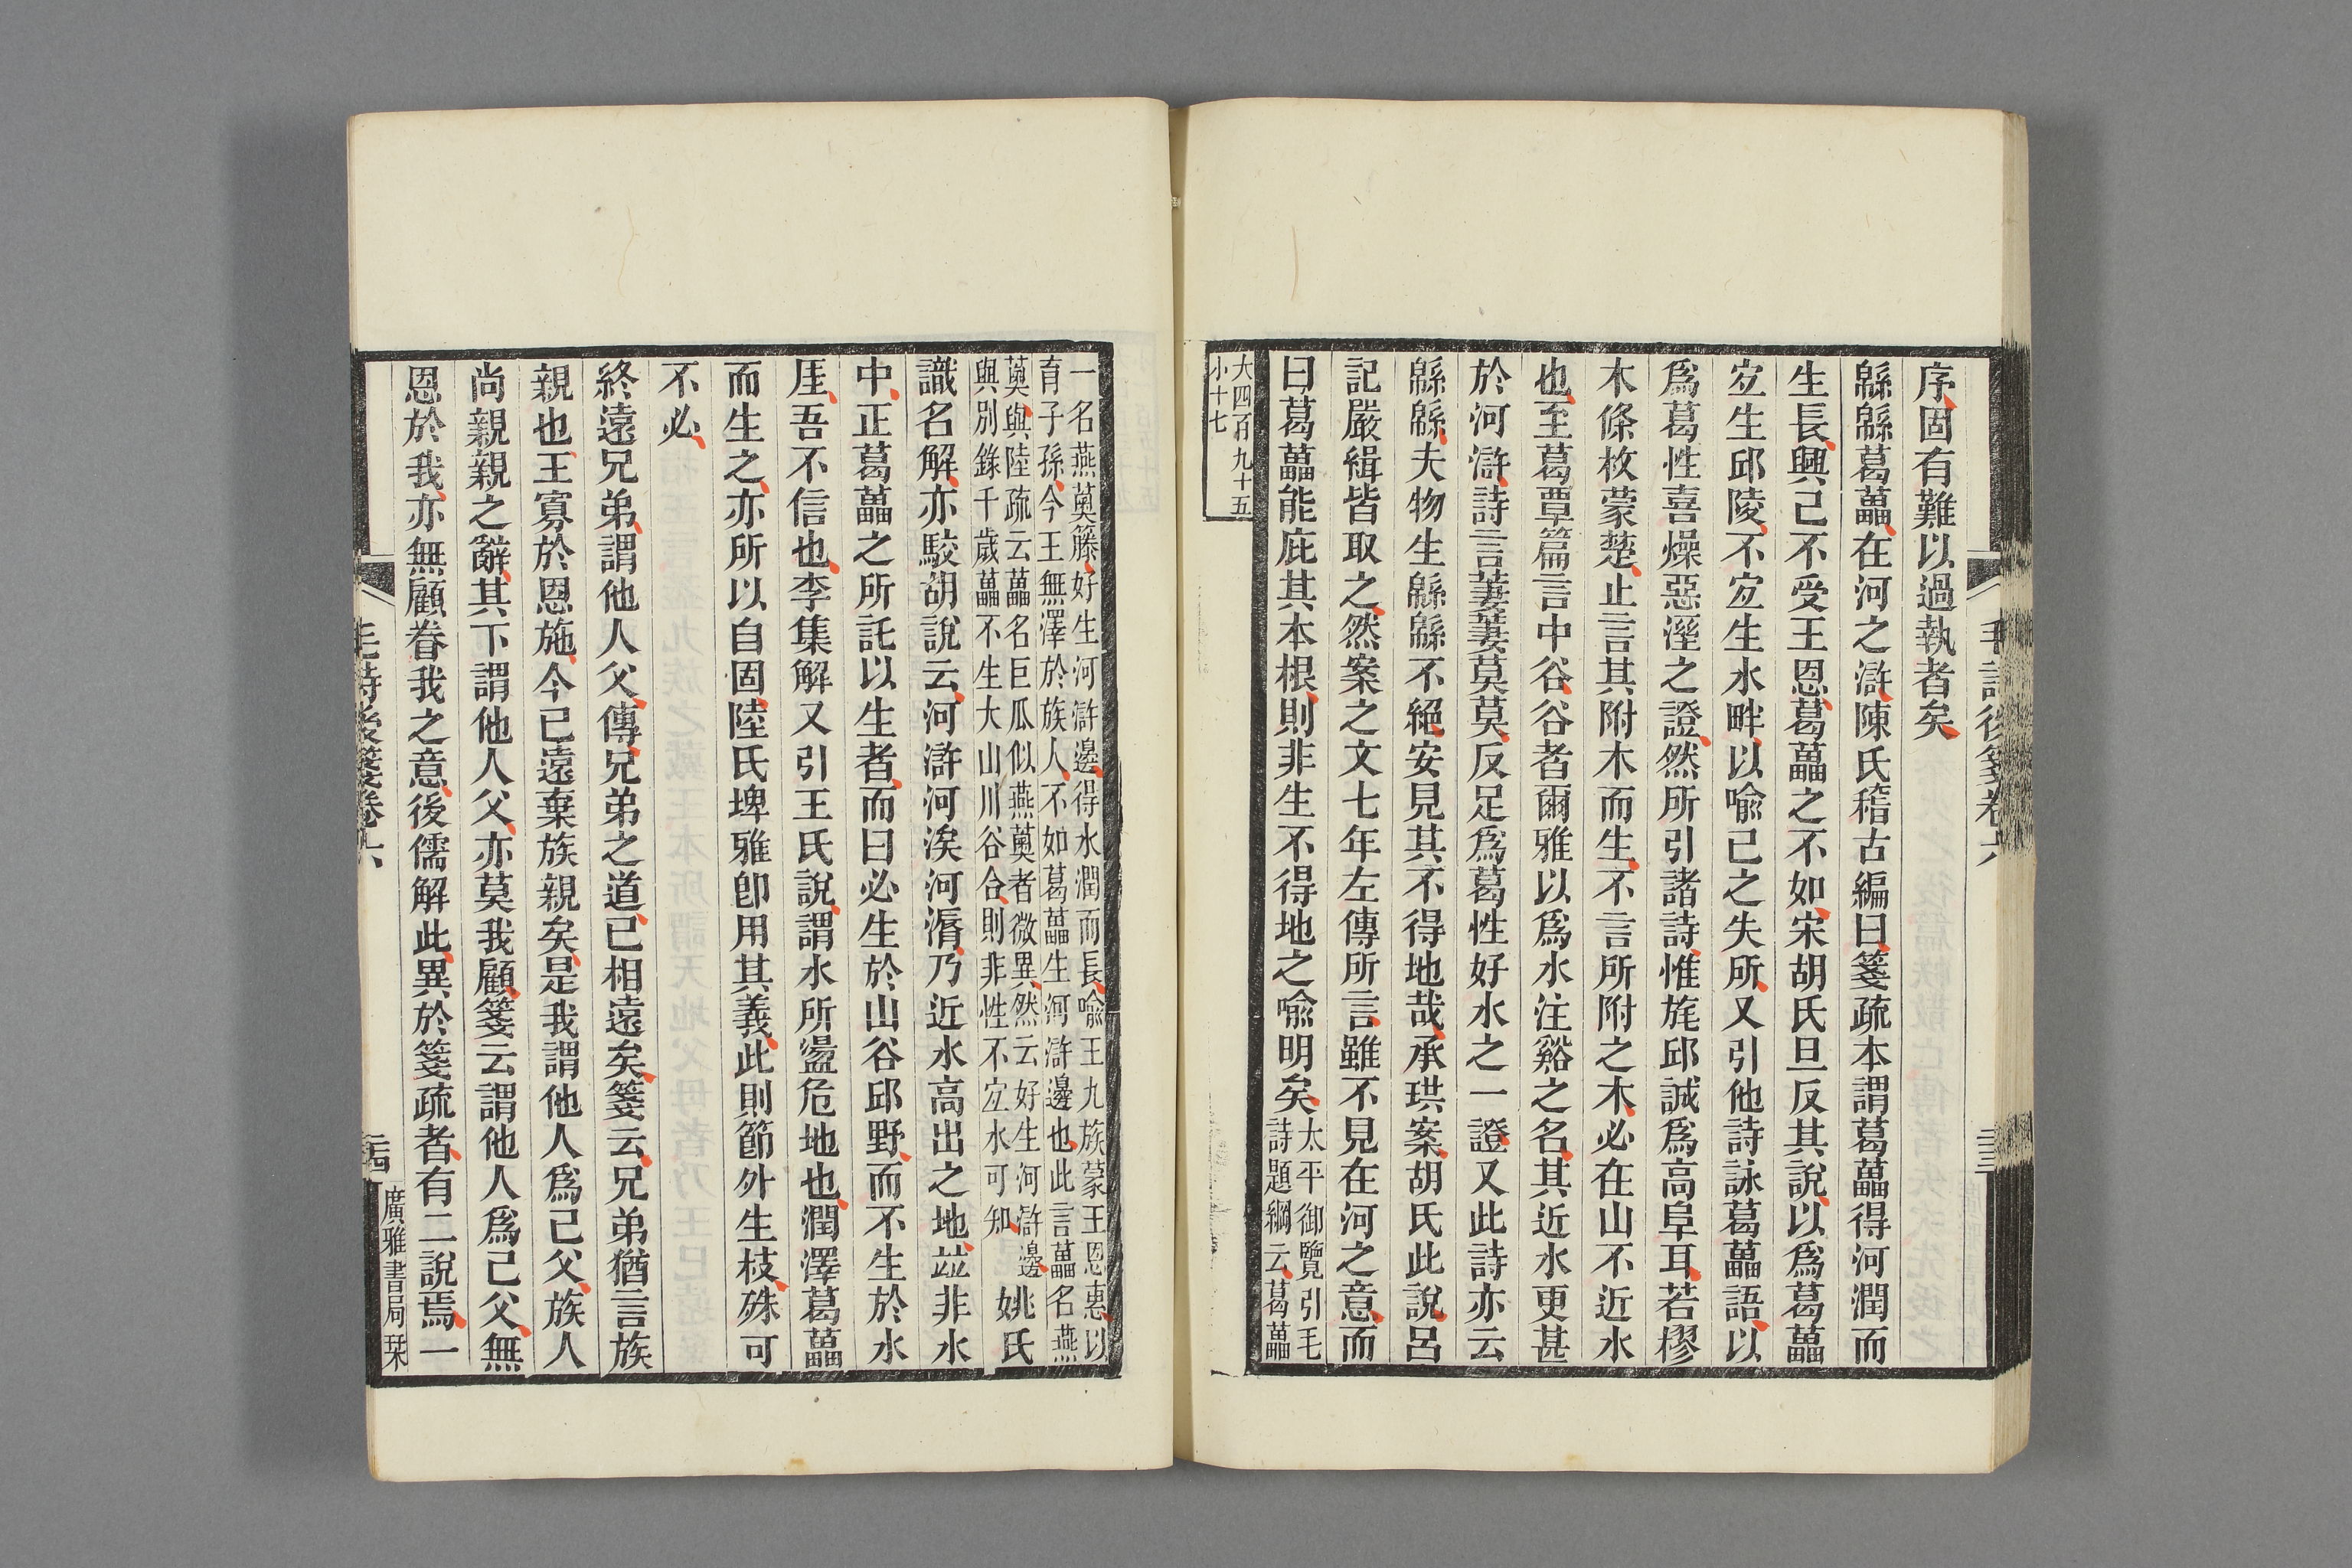 序固有難以過執者矣
緜緜葛藟在河之滸陳氏稽古編曰箋疏本謂葛藟得河潤而
生長興己不受王恩葛藟之不如宋胡氏旦反其說以爲葛藟
宐生邱陵不宐生水畔以喻己之失所又引他詩詠葛藟語以
爲葛性喜燥惡溼之證然所引諸詩惟旄邱誠爲高阜耳若樛
木條枚蒙楚止言其附木而生不言所附之木必在山不近水
也至葛覃篇言中谷谷者爾雅以爲水注谿之名其近水更甚
於河滸詩言萋萋莫莫反足爲葛性好水之一證又此詩亦云
緜緜夫物生緜緜不絕安見其不得地哉承珙案胡氏此說呂
記嚴緝皆取之然案之文七年左傳所言雖不見在河之意而
曰葛藟能庇其本根則非生不得地之喻明矣太平御覽引毛
詩題綱云葛藟
大四百九十五
小十七
毛詩後箋卷六
一名燕薁籐好生河滸邊得水潤而長喻王九族蒙王恩惠以
育子孫今王無澤於族人不如葛藟生河滸邊也此言藟名燕
薁與陸疏云藟名巨瓜似燕薁者微異然云好生河滸邊
與別錄千歲藟不生大山川谷合則非性不宐水可知
姚氏
識名解亦駮胡說云河滸河涘河漘乃近水高出之地竝非水
中正葛藟之所託以生者而曰必生於山谷邱野而不生於水
厓吾不信也李集解又引王氏說謂水所盪危地也潤澤葛藟
而生之亦所以自固陸氏埤雅卽用其義此則節外生枝殊可
不必
終遠兄弟謂他人父傳兄弟之道已相遠矣箋云兄弟猶言族
親也王寡於恩施今已遠棄族親矣是我謂他人爲己父族人
尚親親之辭其下謂他人父亦莫我顧箋云謂他人爲己父無
恩於我亦無顧眷我之意後儒解此異於箋疏者有二說焉一
毛詩後箋卷六
廣雅書局栞